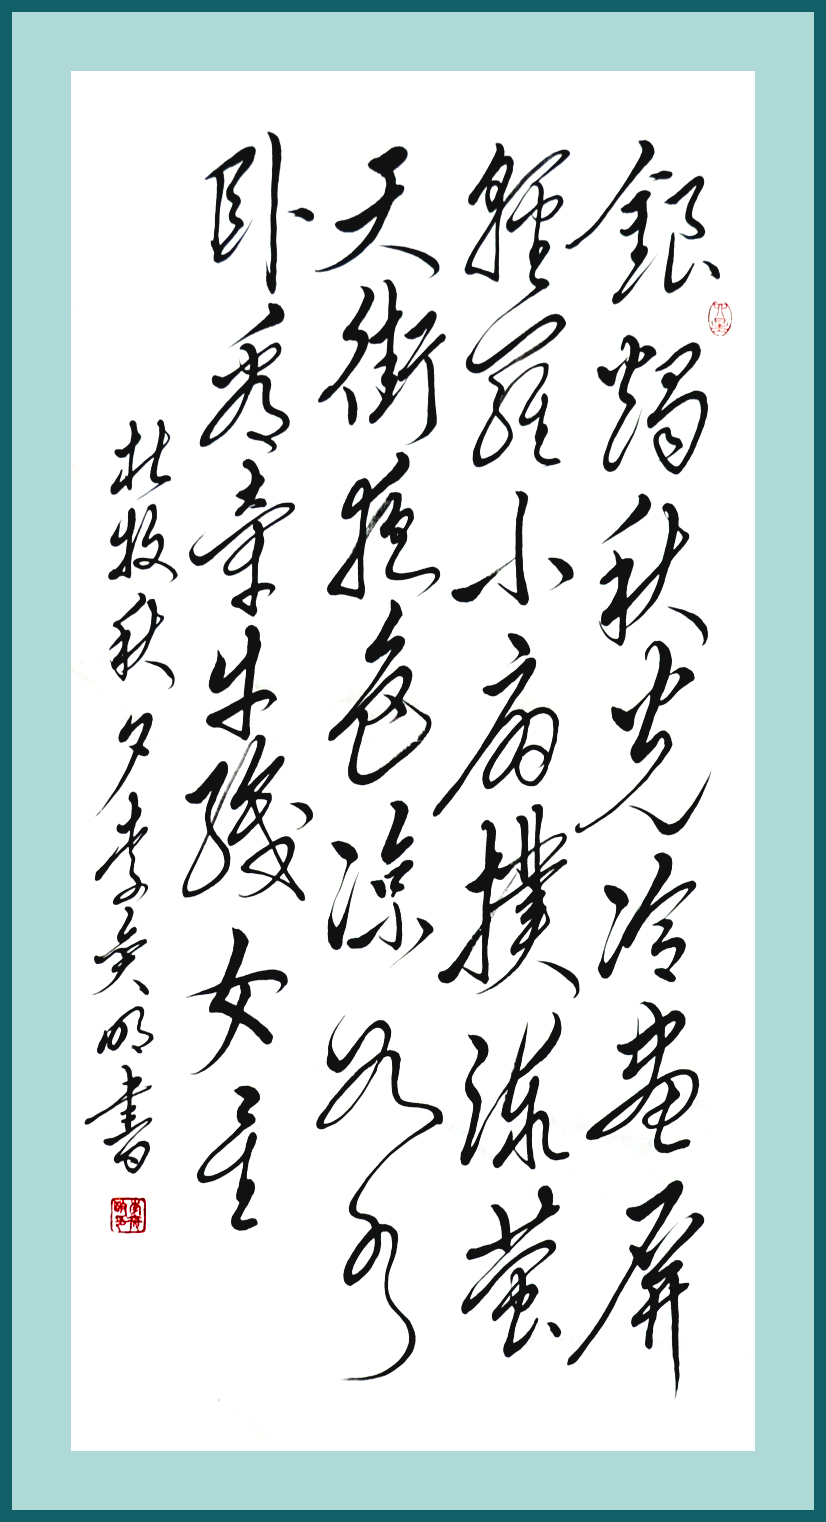 銀燭秋光冷畫屏
輕羅小扇撲流萤
天街夜色涼如水
卧看牽牛織女星
杜牧秋夕李奐明書